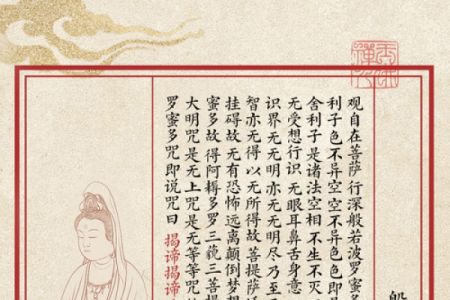 般
观自在菩萨行深般若波罗蜜多
利子色不异空空不异色色即
舍利子是诸法空相不生不灭
无受想行识无眼耳鼻舌身意
识界无无明亦无无明尽乃至无
智亦无得以无所得故菩提萨
挂碍故无有恐怖远离颠倒梦想
蜜多故得阿耨多罗三藐三菩提
大明咒是无上咒是无等等咒
罗蜜多咒即说咒曰揭谛揭谛